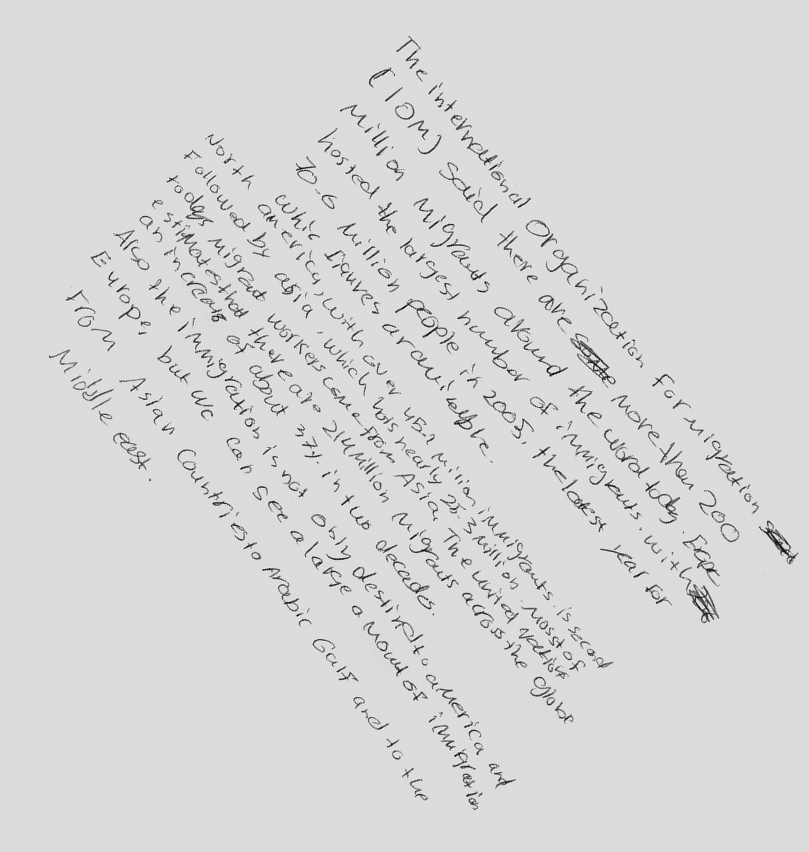 The international Organization For Migration
(IOM) Said there are more than 200
Million Migrants around the world today. Europe
hosted the largest number of immigrants, with
70.6 Million people in 2005, the latest year for
whic figures ar availeble.
North america, with over 45.1 million immigrants. is second
Followed by asia, which has nearly 25.3 million. Mosst of
todays migrant workers come from Asia. The united nations
estimatesthat there are 214 Million Migrants across the globe
an increas of about 37% in two decades.
Also the immigration is not only destined to america and
Europe, but we can see a large amount of immigration
From Asian Countries to Arabic Gulf and to the
Middle east.